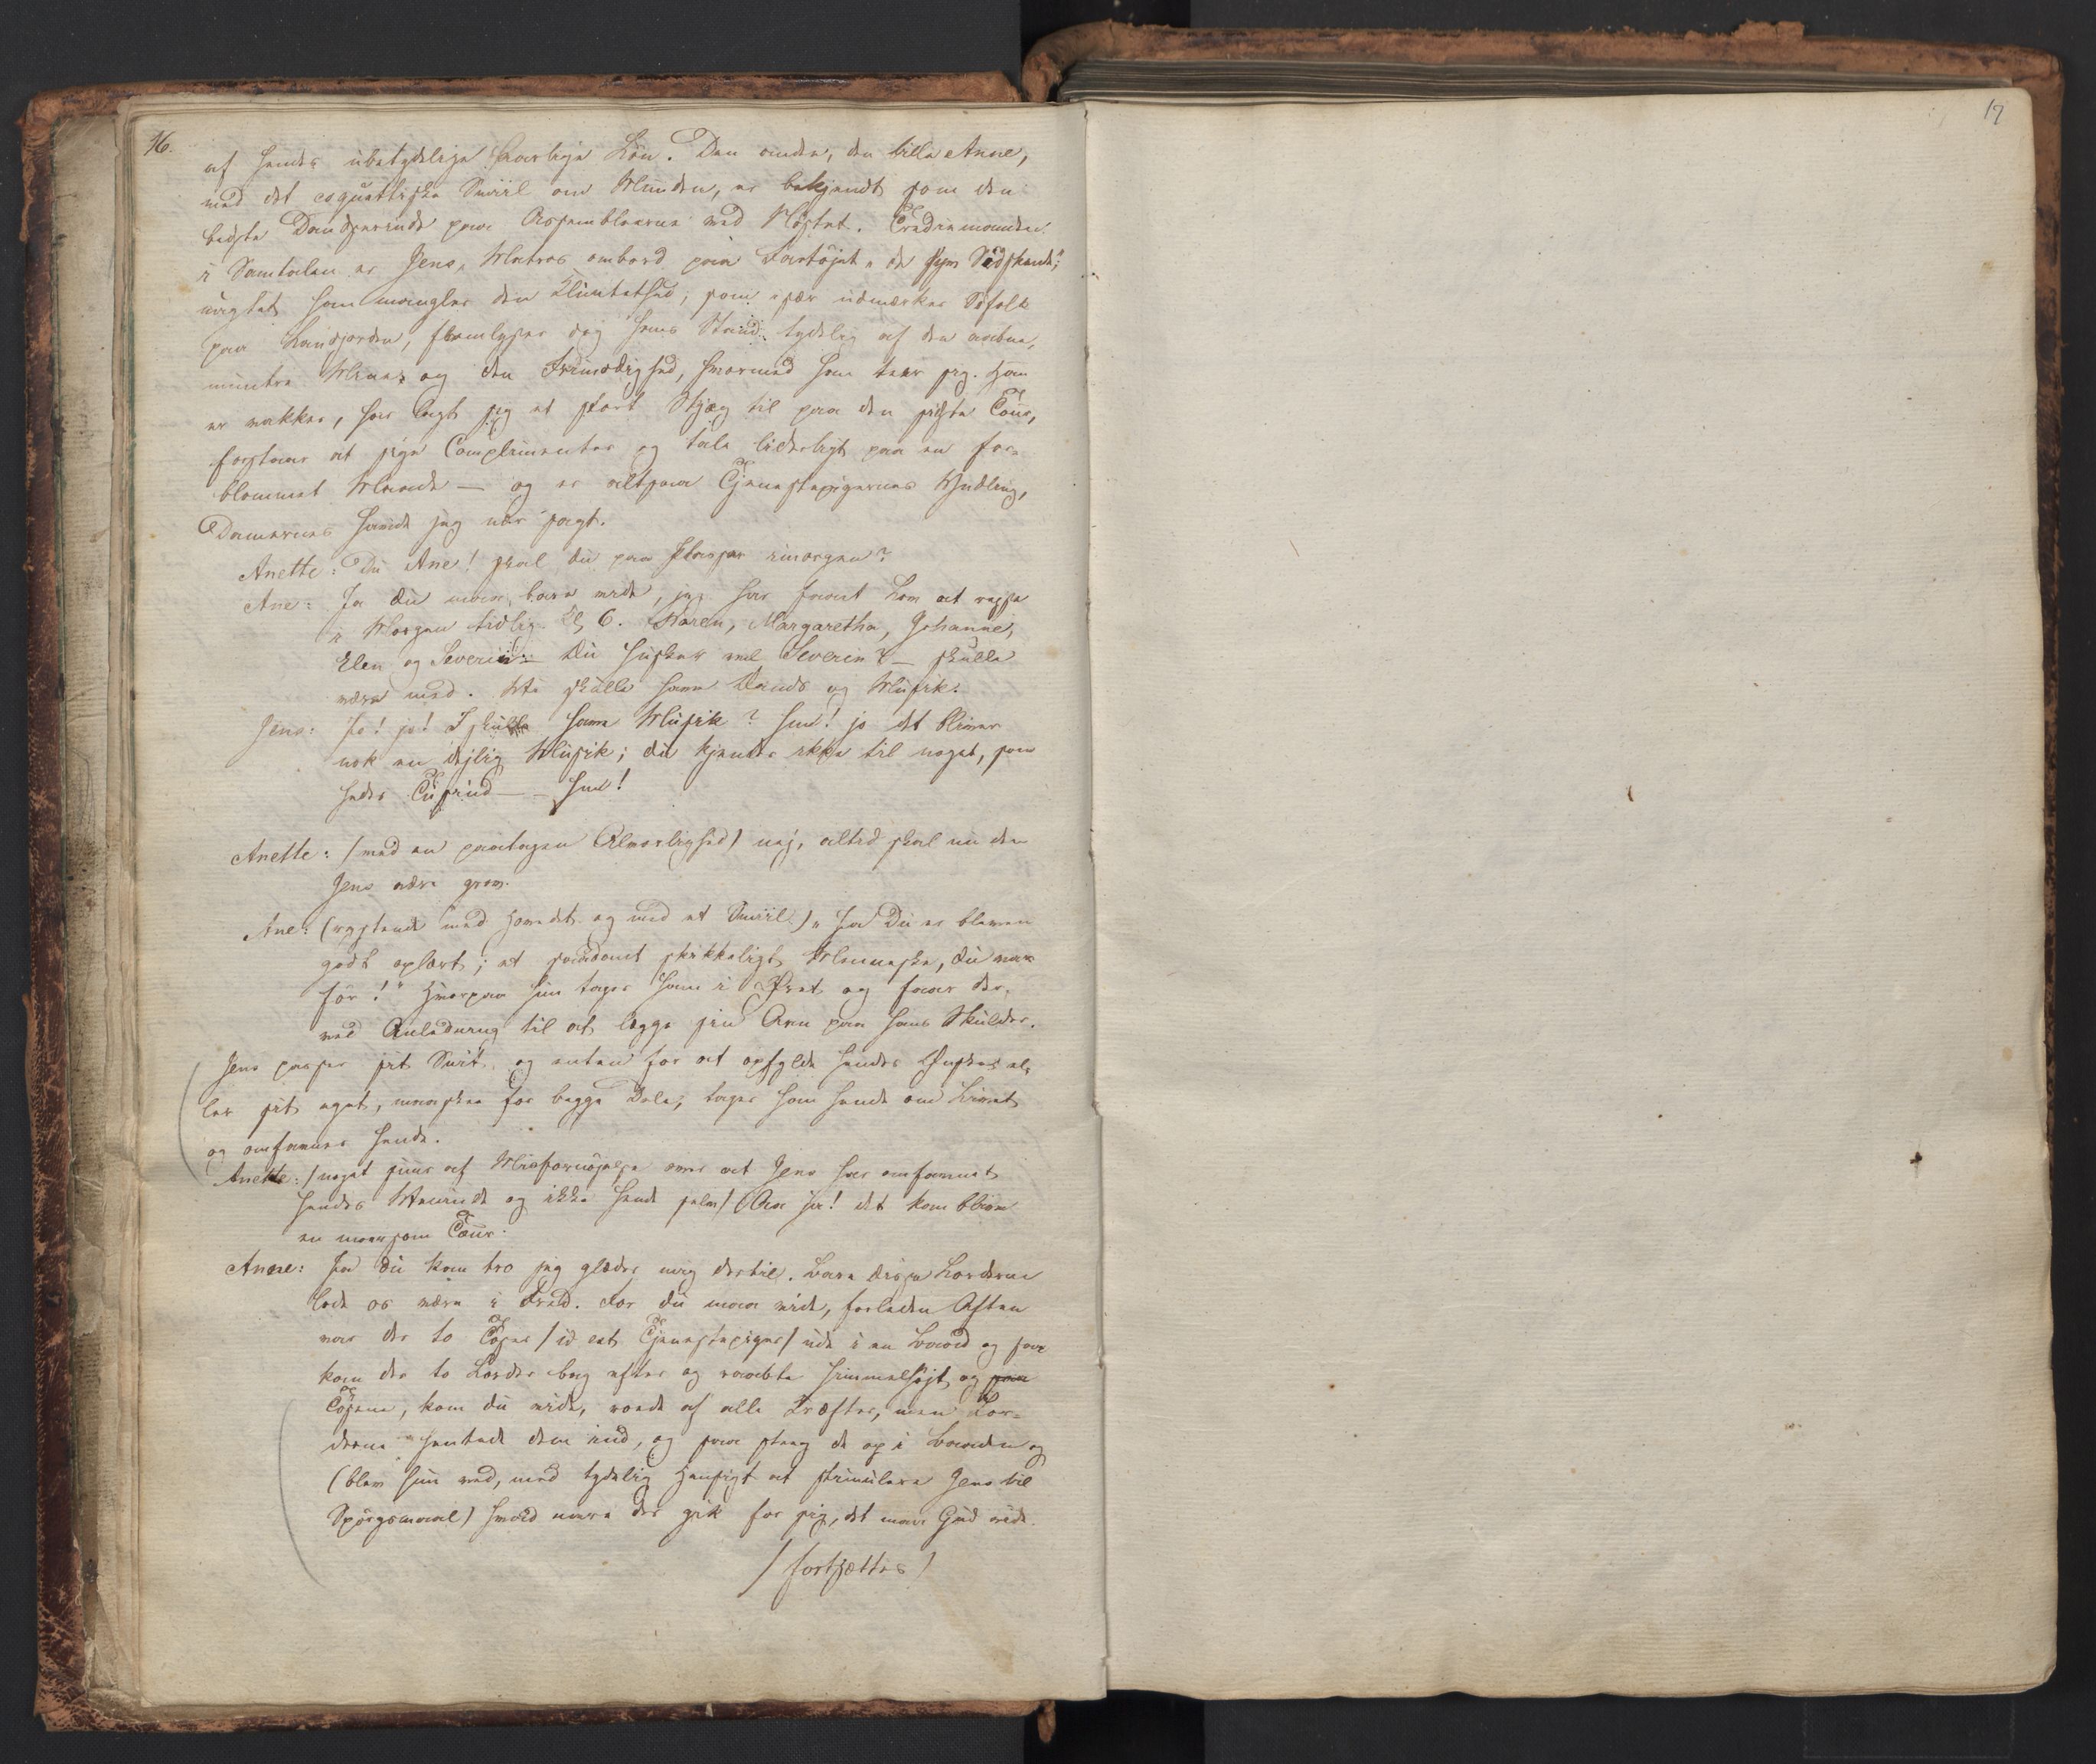 16.
af hendes ubetydelige aarlige Løn. Den anden, den lille Anne,
med det coquettiske Smiil om Munden, er bekjendt som den
bedste Dandserinde paa Assembleerne ved Nøstet. Trediemanden
i Samtalen er Jens, Matros ombord paa Fartøjet „de syv Sødskende",
uagtet han mangler den Pluntethed, som især udmærker Søfolk
paa Landjorden, fremlyser dog hans Stand tydelig af den aabne,
muntre Mine og den Frimodighed, hvormed han teer sig. Han
er vakker, har lagt sig et stort Skjæg til paa den sidste Tour,
forstaaer at sige Complimenter og tale liderligt paa en for-
blommet Maade — og er altsaa Tjenestepigernes Yndling,
Damernes havde jeg nær sagt.
Anette: Du Ane! skal du paa Flaasør imorgen?
Ane: Ja du maa bare vide, jeg har faaet Lov at rejse
i Morgen tidlig Kl 6. Maren, Margaretha, Johanne,
Elen og Severin — du husker vel Severin? — skulle
være med. Vi skulle have Dands og Musik.
Jens: Jo! jo! I skulle have Musik? hm! jo det bliver
nok en dejlig Musik; du kjender ikke til noget, som
heder Tusind — — hm!
Anette: / med en paatagen Alvorlighed / nej, altid skal nu den
Jens være grov.
Ane: (rystende med Hovedet og med et Smiil) „Ja Du er bleven
godt oplært; et saadant skikkeligt Menneske, du var
før!" Hvorpaa hun tager ham i Øret og faaer der-
ved Anledning til at lægge sin Arm paa hans Skulder.
Jens passer sit Snit, og enten for at opfylde hendes Ønske el-
ler sit eget, maaskee for begge Dele, tager han hende om Livet
og omfavner hende.
Anette: / noget suur af Misfornøjelse over at Jens har omfavnet
hendes Veninde og ikke hende selv / Aa ja! det kan blive
en morsom Tour.
Anne: Ja du kan tro jeg glæder mig dertil. Bare disse Lorderne
lode os være i Fred. For du maa vide, forleden Aften
var der to Tøser / id est Tjenestepiger / ude i en Baad og saa
kom der to Lorder bag efter og raabte himmelhøjt, og paa
Tøsene, kan du vide, roede af alle Kræfter, men Lor-
derne hentede dem ind, og saa steeg de op i Baaden og
(blev hun ved, med tydelig Hensigt at stimulere Jens til
Spørgsmaal) hvad mere der gik for sig, det maa Gud vide.
/ fortsættes /
17